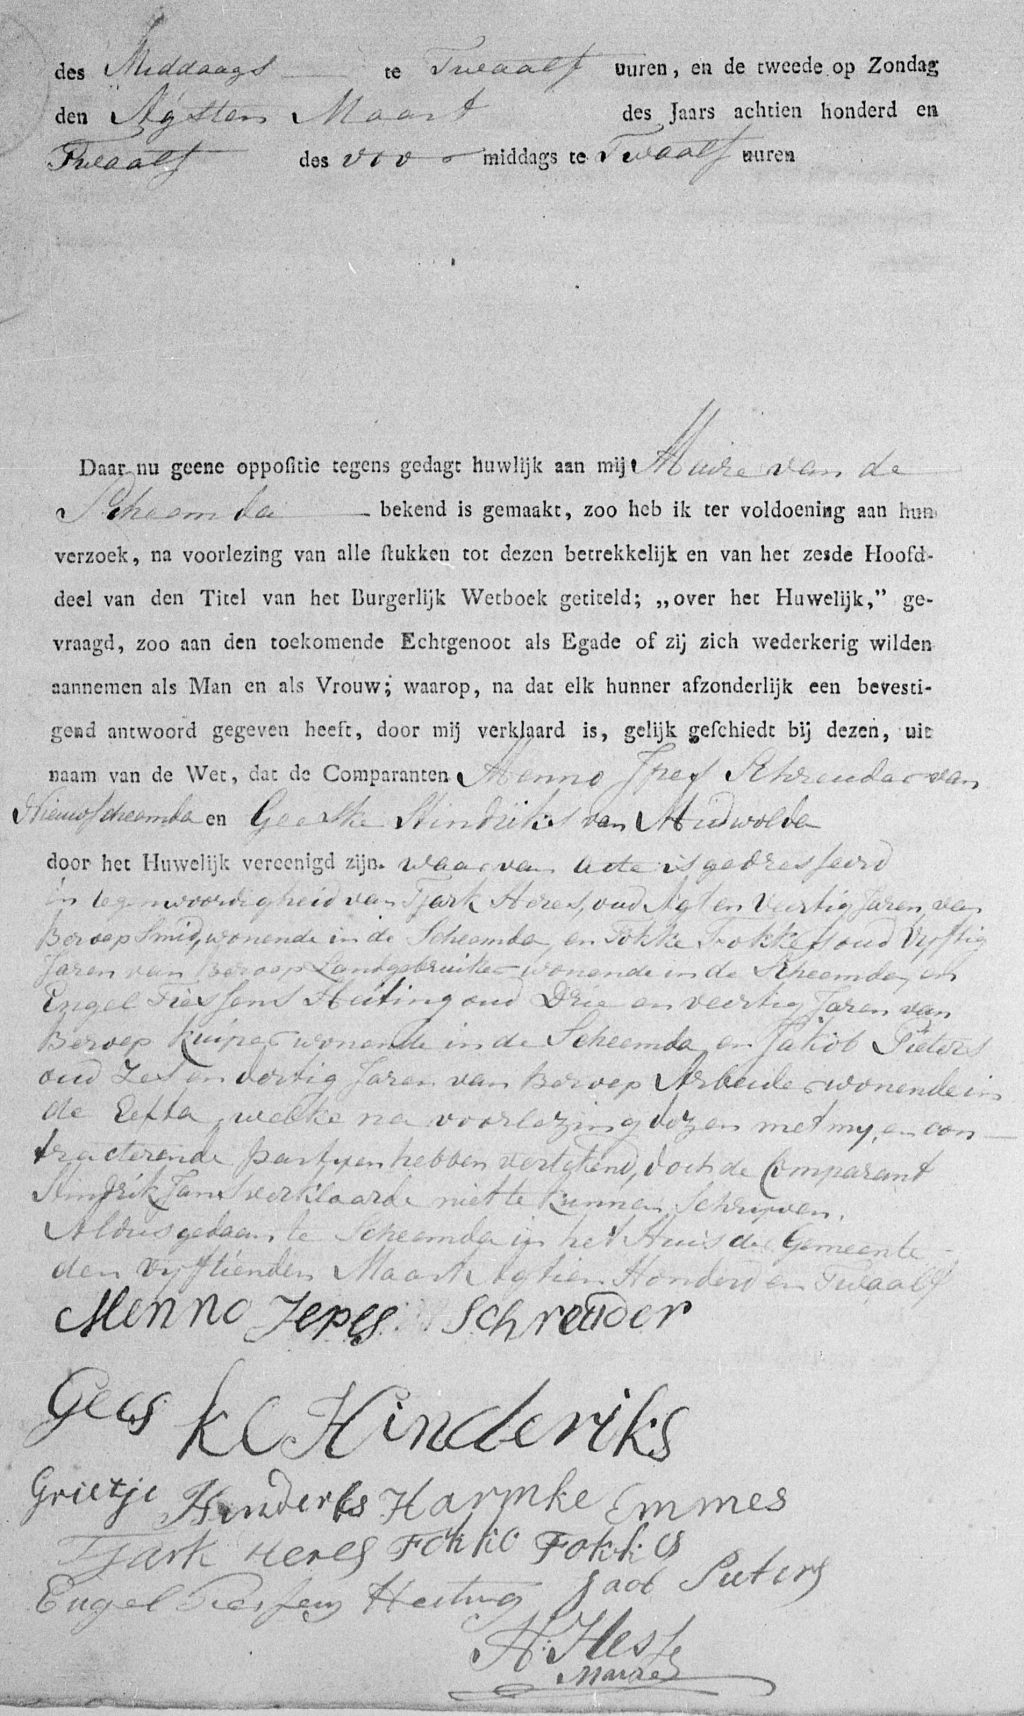 des Middaags te Twaalf uuren, en de tweede op Zondag
den Agsten Maart des Jaars achtien honderd en
Twaalf des voo middags te Twaalf uuren
Daar nu geene oppositie tegens gedagt huwlijk aan mij Maire van de
Scheemda bekend is gemaakt, zoo heb ik ter voldoening aan hun
verzoek, na voorlezing van alle stukken tot dezen betrekkelijk en van het zesde Hoofd-
deel van den Titel van het Burgerlijk Wetboek getiteld; „over het Huwelijk,” ge-
vraagd, zoo aan den toekomende Echtgenoot als Egade of zij zich wederkerig wilden
aannemen als Man en als Vrouw; waarop, na dat elk hunner afzonderlijk een bevesti-
gend antwoord gegeven heeft, door mij verklaard is, gelijk geschiedt bij dezen, uit
naam van de Wet, dat de Comparanten Menno Jpes Schreuder van
Nieuwscheemda en Geeske Hindriks van Midwolda
door het Huwelijk vereenigd zijn. waar van acte is gedresseerd
in tegenwoordigheid van Tjark Heres, oud Agt en Veertig Jaren, van
Beroep Smid, wonende in de Scheemda, en Fokke Fokkes oud Vyftig
Jaren van Beroep Landgebruiker wonende in de Scheemda, en
Engel Tiessens Heiting oud Drie en veertig Jaren van
Beroep Kuiper wonende in de Scheemda, en Jakob Pieters
oud Zes en vertig Jaren van Beroep Arbeider wonende in
de Eexta, welke na voorlezing dezen met my, en con-
tracterende partyen hebben vertekend, doch de Comparant
Hindrik Jans verklaarde niet te kunnen Schryven.
Aldus gedaan te Scheemda in het Huis der Gemeente
den Vyftienden Maart Agtien Honderd en Twaalf
Menno Jepes Schreuder
Gees ke Hinderiks
Grietje Hinderks Harmke Emmes
Tjark Heres Fokko Fokkes
Engel Tiessens Heiting Jacob Pieters
H. Hesse
Maire